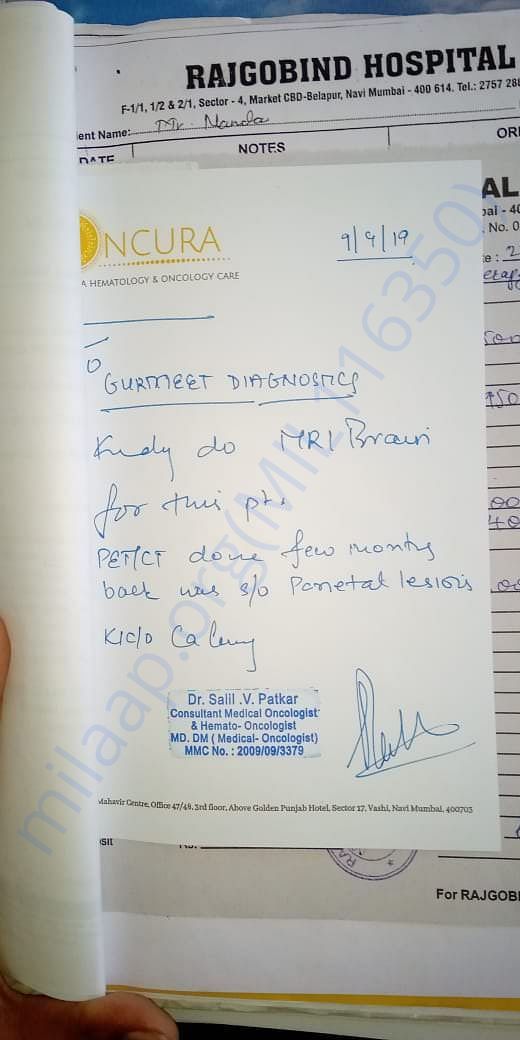 RAJGOBIND HOSPITAL
F-1/1, 1/2 & 2/1, Sector - 4, Market CBD-Belapur, Navi Mumbai - 400 614. Tel.: 2757 28
ent Name: Mr. Nanda
DATE NOTES OR
AL
bai - 40
. No. 0
NCURA
A HEMATOLOGY & ONCOLOGY CARE
9/9/19
GURMEET DIAGNOSTICS
Kindly do MRI Brain
for this pt.
PET/CT done few months
back was s/o Parietal lesions
K/c/o Ca lung
Dr. Salil .V. Patkar
Consultant Medical Oncologist
& Hemato- Oncologist
MD. DM ( Medical- Oncologist)
MMC No. : 2009/09/3379
Mahavir Centre, Office 47/48, 3rd floor, Above Golden Punjab Hotel, Sector 17, Vashi, Navi Mumbai, 400703
For RAJGOBI
milaap.org(MIL116350)